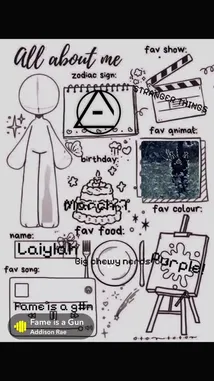 All about me
fav show:
STRANGER THINGS
zodiac sign:
fav animal:
birthday:
fav colour:
Purple!
fav food:
Big chewy nerds!
name:
Laiylah
fav song:
Fame is a gun
Fame is a Gun
Addison Rae